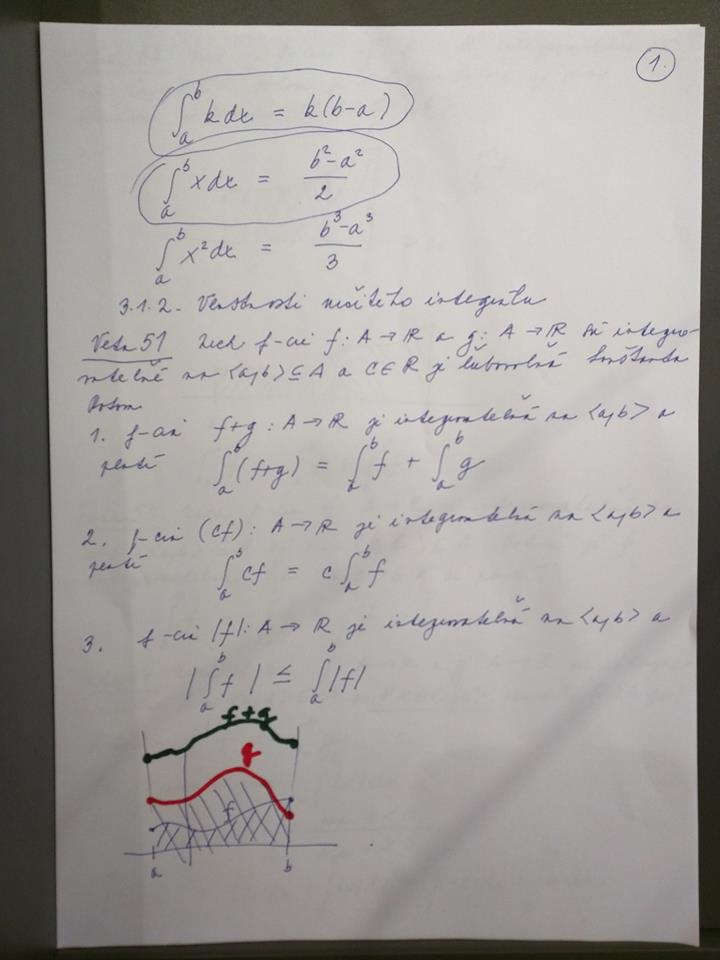 1.
∫_a^b k dx = k(b-a)
∫_a^b x dx = (b²-a²)/2
∫_a^b x² dx = (b³-a³)/3
3.1.2. Vlastnosti určitého integrálu
Veta 51 Nech f-cie f: A → R a g: A → R sú integro-
vateľné na <a,b> ⊆ A a c ∈ R je ľubovoľná konštanta
Potom
1. f-cia f+g : A → R je integrovateľná na <a,b> a
platí ∫_a^b (f+g) = ∫_a^b f + ∫_a^b g
2. f-cia (cf): A → R je integrovateľná na <a,b> a
platí ∫_a^b cf = c ∫_a^b f
3. f-cia |f|: A → R je integrovateľná na <a,b> a
|∫_a^b f| ≤ ∫_a^b |f|
f+g
g
f
a b